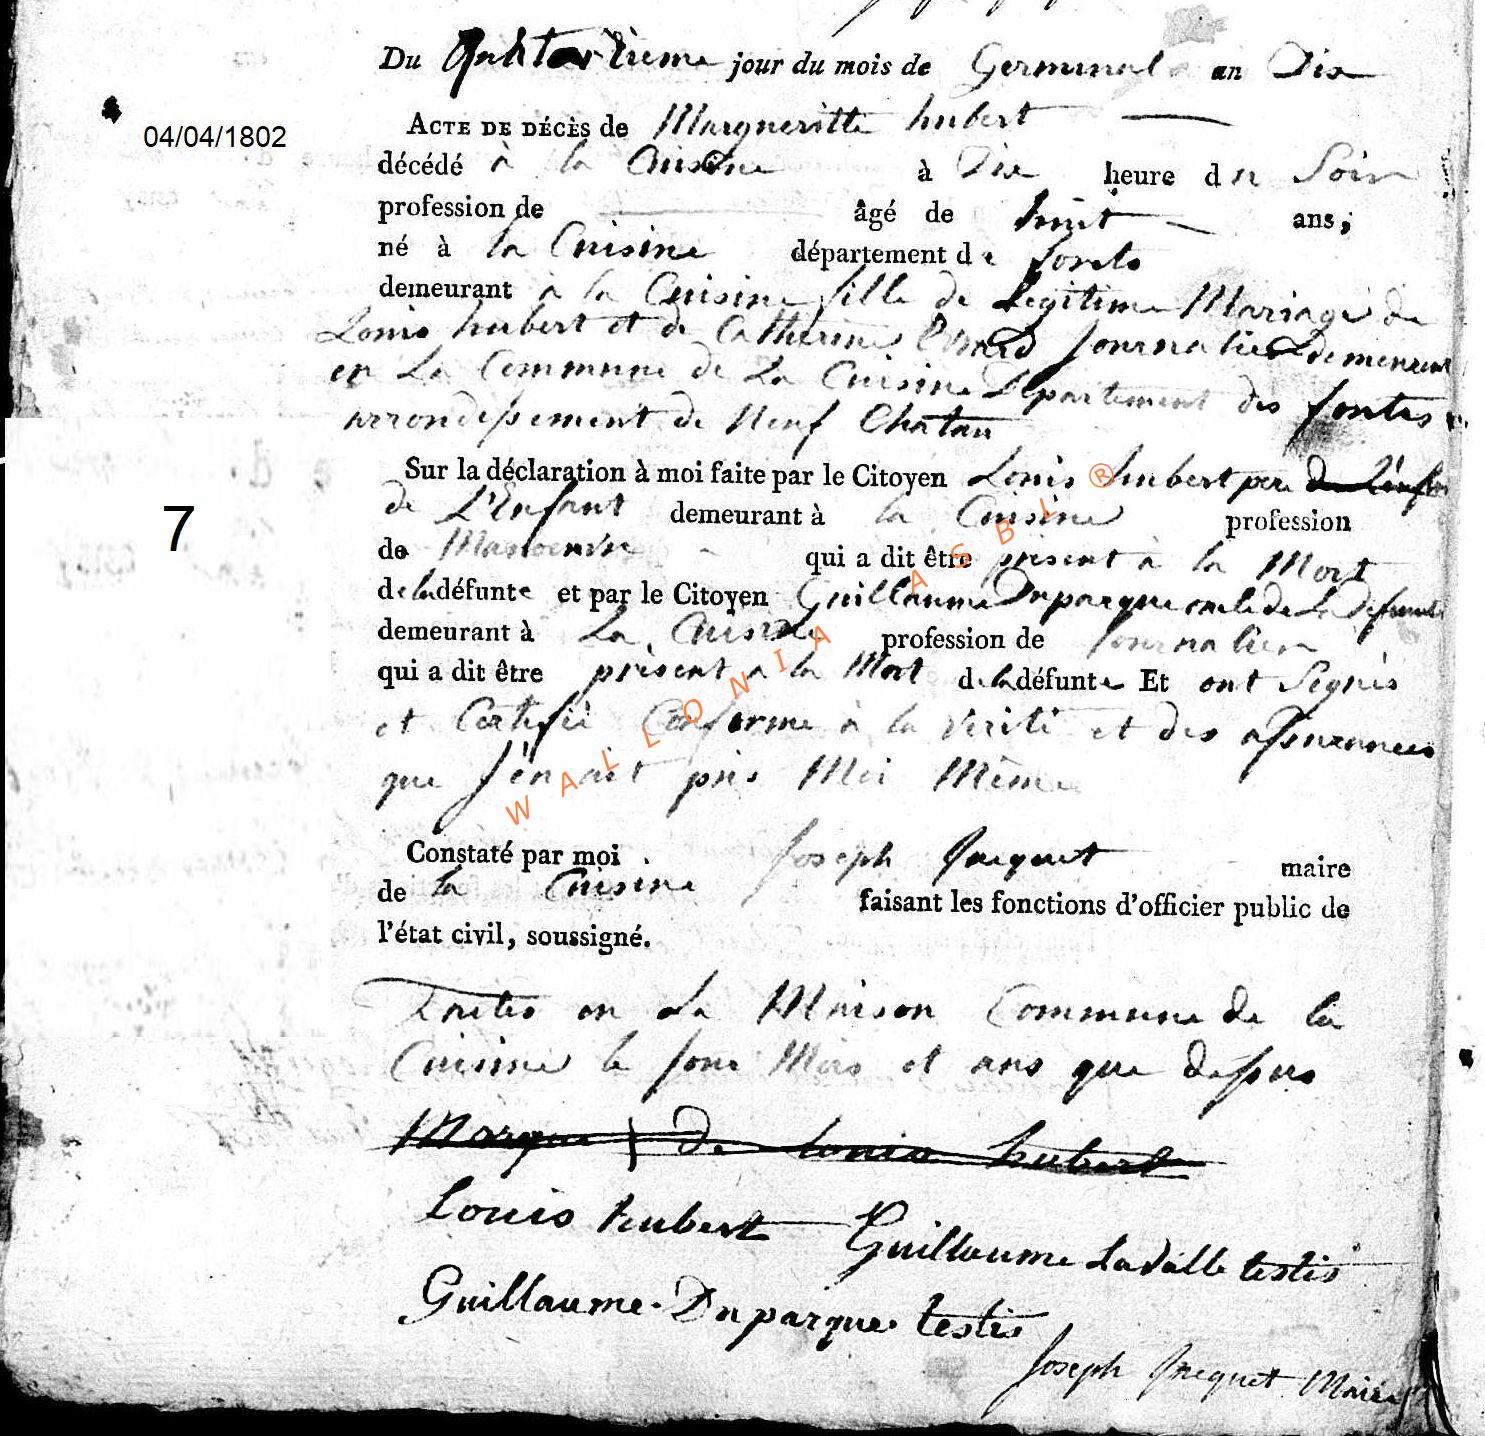 Du Quatorzieme jour du mois de Germinal an Dix
04/04/1802
ACTE DE DÉCÈS de Margueritte hubert
décédé à la Cuisine à Dix heure du Soir
profession de âgé de huit ans;
né à la Cuisine département de forets
demeurant à la Cuisine fille de Legitime Mariage de
Louis hubert et de Catherine Evrard Journalier demeurant
en La Commune de La Cuisine Departement des forets
arrondissement de Neuf Chatau
Sur la déclaration à moi faite par le Citoyen Louis hubert pere
de L'Enfant demeurant à la Cuisine profession
7
de Manoeuvre qui a dit être present à la Mort
de la défunte et par le Citoyen Guillaume Duparque oncle de La Defunte
demeurant à La Cuisine profession de Journalier
qui a dit être présent a la Mort de la défunte Et ont Segnés
et Certifié Conforme à la Verité et des assurances
que J'en ait pris Moi Même
WALLONIA ASBL ®
Constaté par moi Joseph Jacquet maire
de la Cuisine faisant les fonctions d'officier public de
l'état civil, soussigné.
Faites en La Maison Commune de la
Cuisine le Jour Mois et ans que dessus
Marque de Louis hubert
Louis hubert Guillaume Lavalle testis
Guillaume Duparque testis
Joseph Jacquet Maire